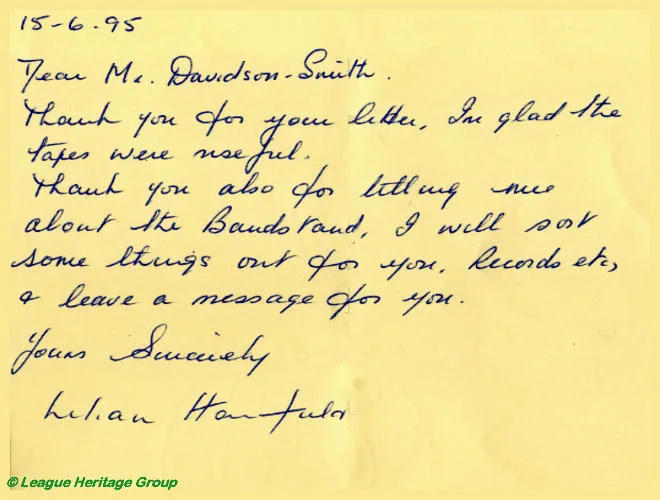 15-6-95
Dear Mr. Davidson-Smith.
Thank you for your letter, Im glad the
tapes were useful.
Thank you also for telling me
about the Bandstand, I will sort
some things out for you, Records etc,
& leave a message for you.
Yours Sincerely
Lilian
© League Heritage Group